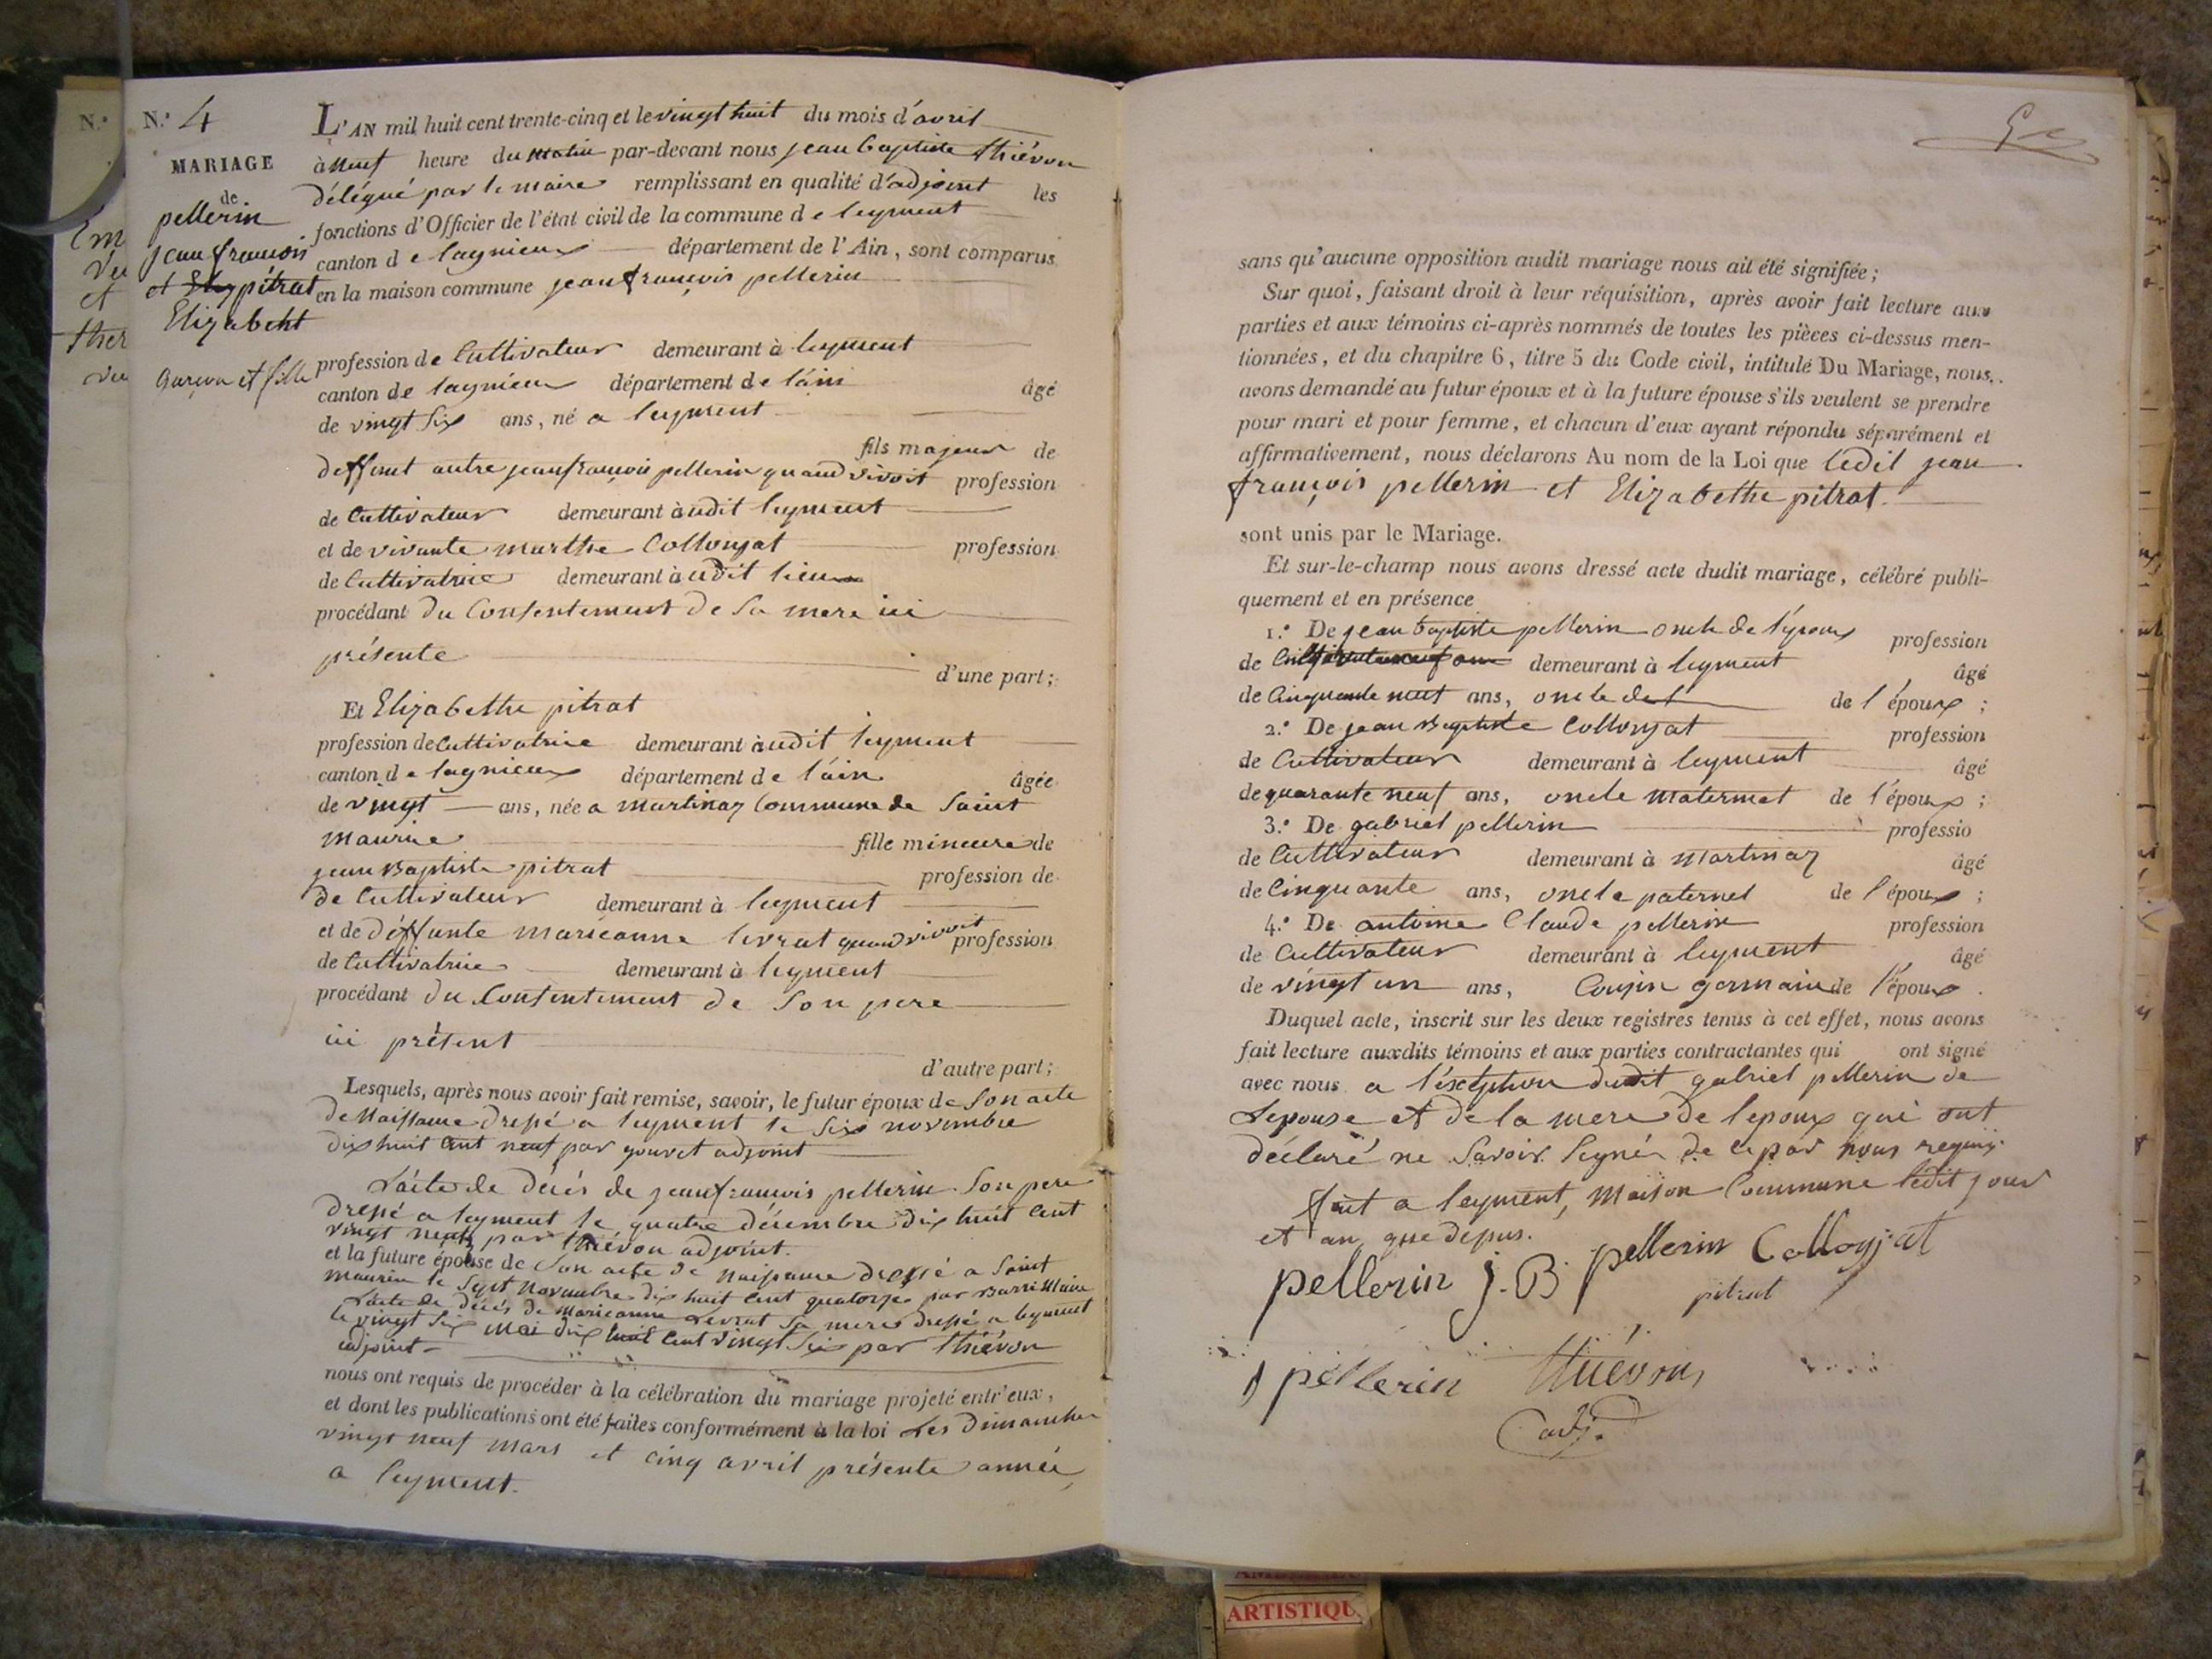 N.º
Em
Ve
et
ther
ve
N.º 4
MARIAGE
de
pellerin
jean françois
et Ely pitrat
Elizabeht
Garçon et fille
L'AN mil huit cent trente-cinq et le vingt huit du mois d'avril
à neuf heure du matin par-devant nous jean baptiste thiévon
délégué par le maire remplissant en qualité d'adjoint les
fonctions d'Officier de l'état civil de la commune de leyment
canton de lagnieux département de l'Ain, sont comparus
en la maison commune jean françois pellerin
profession de Cultivateur demeurant à leyment
canton de lagnieu département de l'ain âgé
de vingt six ans, né a leyment
fils majeur de
deffunt autre jean françois pellerin quand vivoit profession
de Cultivateur demeurant àudit leyment
et de vivante marthe Collonjat profession
de Cultivatrice demeurant àudit lieu
procédant du Consentement de Sa mere ici
présente
d'une part;
Et Elizabethe pitrat
profession de Cultivatrice demeurant àudit leyment
canton de lagnieux département de l'ain âgée
de vingt ans, née a martinaz Commune de Saint
maurice fille mineure de
jean Baptiste pitrat profession de
de Cultivateur demeurant à leyment
et de déffunte marieanne levrat quand vivoit profession
de Cultivatrice demeurant à leyment
procédant du Consentement de Son pere
ici présent
d'autre part;
Lesquels, après nous avoir fait remise, savoir, le futur époux de Son acte
de Naissance dressé a leyment le Six novembre
dix huit Cent neuf par gouvet adjoint
L'acte de décés de jean françois pellerin Son pere
dressé a leyment le quatre décembre dix huit Cent
vingt neuf par thiévon adjoint.
et la future épouse de Son acte de naissance dressé a Saint
maurice le Sept Novembre dix huit Cent quatorze par Barri Maire
L'acte de décés de Marieanne Levrat Sa mere dressé a leyment
le vingt Six mai dix huit Cent vingt Six par thiévon
adjoint
nous ont requis de procéder à la célébration du mariage projeté entr'eux,
et dont les publications ont été faites conformément à la loi Les Dimanches
vingt neuf mars et cinq avril présente année,
a leyment.
sans qu'aucune opposition audit mariage nous ait été signifiée;
Sur quoi, faisant droit à leur réquisition, après avoir fait lecture aux
parties et aux témoins ci-après nommés de toutes les pièces ci-dessus men-
tionnées, et du chapitre 6, titre 5 du Code civil, intitulé Du Mariage, nous
avons demandé au futur époux et à la future épouse s'ils veulent se prendre
pour mari et pour femme, et chacun d'eux ayant répondu séparément et
affirmativement, nous déclarons Au nom de la Loi que ledit jean
françois pellerin et Elizabethe pitrat.
sont unis par le Mariage.
Et sur-le-champ nous avons dressé acte dudit mariage, célébré publi-
quement et en présence
1.º De jean baptiste pellerin oncle de l'époux profession
de demeurant à leyment âgé
de Cinquante neuf ans, oncle de l'époux;
2.º De jean Baptiste Collonjat profession
de Cultivateur demeurant à leyment âgé
de quarante neuf ans, oncle maternel de l'époux;
3.º De gabriel pellerin professio
de Cultivateur demeurant à martinaz âgé
de Cinquante ans, oncle paternel de l'époux;
4.º De antoine Claude pellerin profession
de Cultivateur demeurant à leyment âgé
de vingt un ans, Cousin germain de l'époux.
Duquel acte, inscrit sur les deux registres tenus à cet effet, nous avons
fait lecture auxdits témoins et aux parties contractantes qui ont signé
avec nous a l'éxception dudit gabriel pellerin de
Lepouse et de la mere de lepoux qui ont
déclaré ne Savoir Signér de ce par nous requis
fait a leyment, maison Commune ledit jour
et an que depus.
pellerin J. B pellerin Collonjat
pitrat
pellerin thiévon
adj.
ARTISTIQU